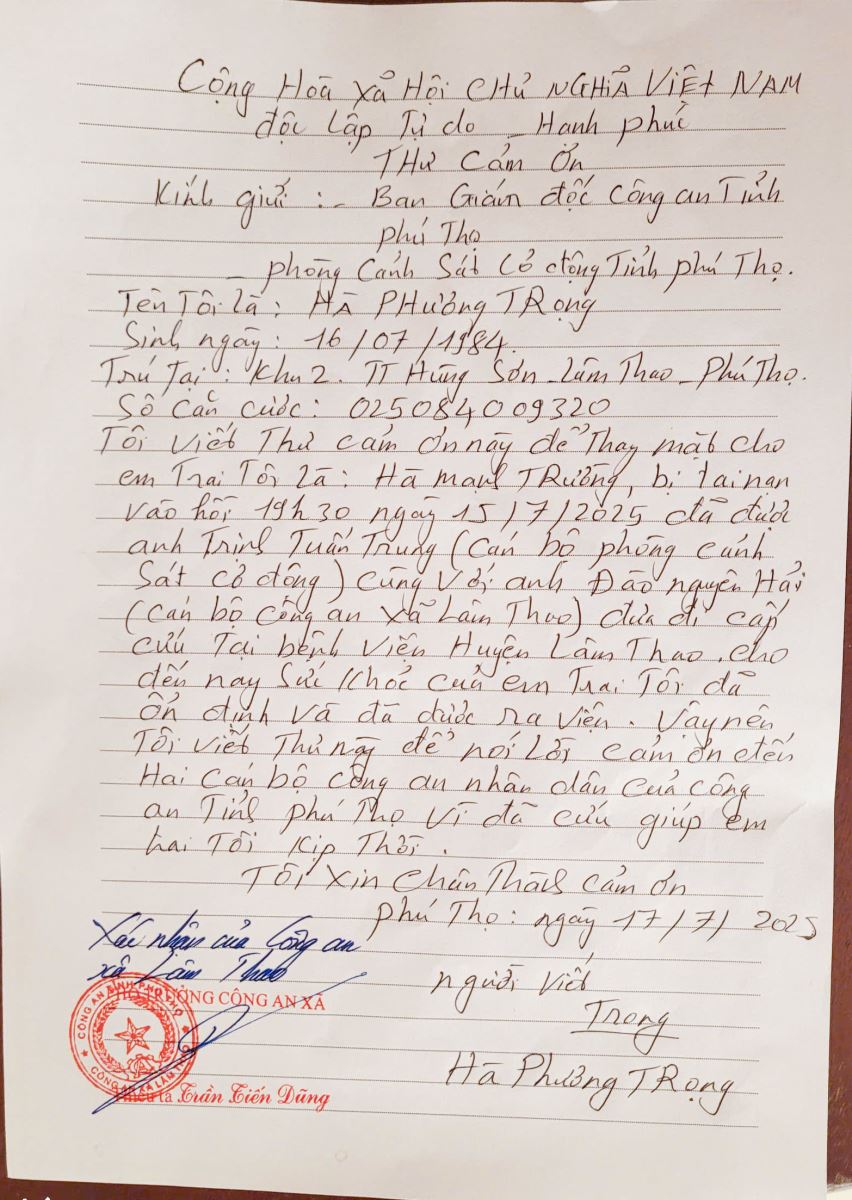 Cộng Hoà Xã Hội CHủ NGHĨA VIỆt NAM
độc lập Tự do - Hạnh phúc
THư Cảm Ơn
Kính gửi : - Ban Giám đốc Công an Tỉnh
phú Thọ
- phòng Cảnh Sát Cơ động Tỉnh phú Thọ.
Tên Tôi là : HÀ PHương TRọng
Sinh ngày : 16/07/1984.
Trú Tại : Khu 2. TT Hùng Sơn - Lâm Thao - Phú Thọ.
Số Căn cước : 025084009320
Tôi Viết Thư cảm ơn này để Thay mặt cho
em Trai Tôi là : Hà mạnh TRường, bị tai nạn
vào hồi 19h30 ngày 15/7/2025 đã được
anh Trịnh Tuấn Trung (Cán bộ phòng cảnh
Sát cơ động) Cùng Với anh Đào nguyên Hải
(Cán bộ Công an Xã Lâm Thao) đưa đi cấp
cứu Tại bệnh Viện Huyện Lâm Thao. cho
đến nay Sức khỏe của em Trai Tôi đã
ổn định và đã được ra viện. Vậy nên
Tôi Viết Thư này để nói Lời cảm ơn đến
Hai Cán bộ công an nhân dân của công
an Tỉnh phú Thọ Vì đã cứu giúp em
hai Tôi Kịp Thời.
Tôi Xin Chân Thành cảm ơn
Phú Thọ : ngày 17/7/2025
Xác nhận của Công an
xã Lâm Thao
người viết
TRƯỞNG CÔNG AN XÃ
Trọng
CÔNG AN TỈNH PHÚ THỌ
CÔNG AN XÃ LÂM THAO
Hà Phương TRọng
Thiếu tá Trần Tiến Dũng